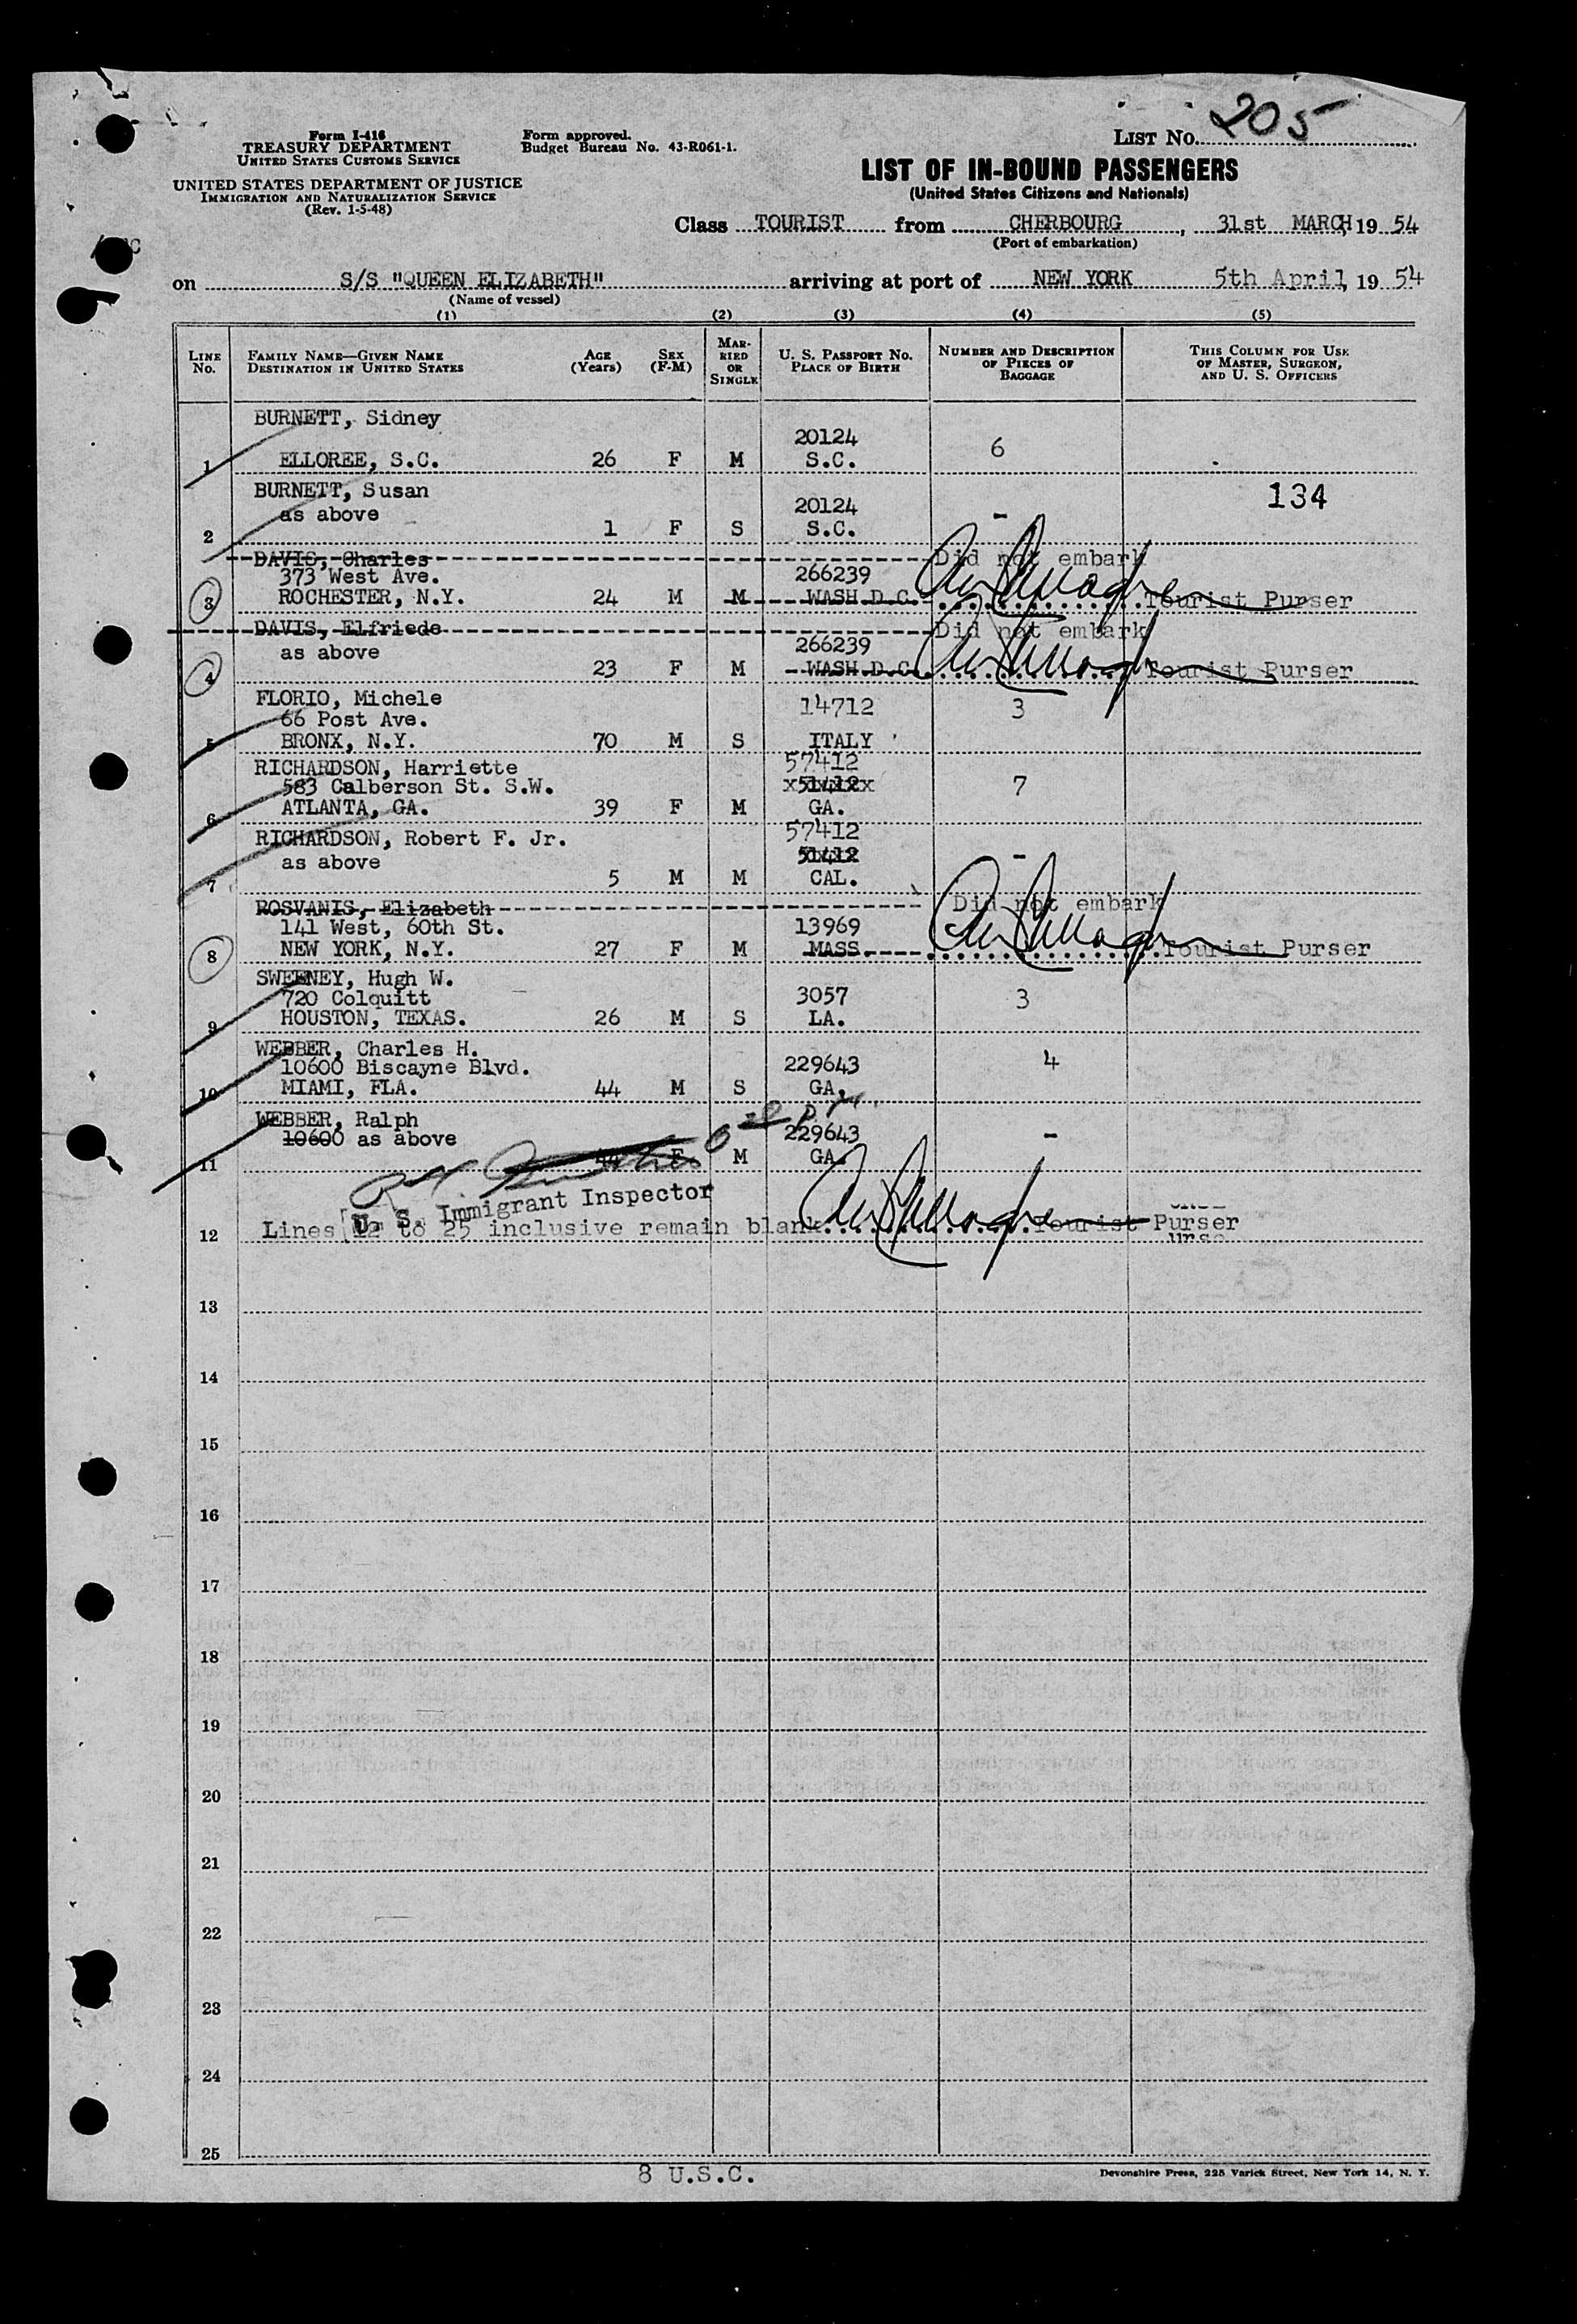 205
Form I-416
TREASURY DEPARTMENT
UNITED STATES CUSTOMS SERVICE
UNITED STATES DEPARTMENT OF JUSTICE
IMMIGRATION AND NATURALIZATION SERVICE
(Rev. 1-5-48)
Form approved.
Budget Bureau No. 43-R061-1.
LIST No.
LIST OF IN-BOUND PASSENGERS
(United States Citizens and Nationals)
Class TOURIST from CHERBOURG, 31st MARCH, 19 54
(Port of embarkation)
on S/S "QUEEN ELIZABETH" arriving at port of NEW YORK 5th April, 19 54
(Name of vessel)
(1) (2) (3) (4) (5)
LINE No. FAMILY NAME—GIVEN NAME DESTINATION IN UNITED STATES AGE (Years) SEX (F-M) MARRIED OR SINGLE U. S. PASSPORT No. PLACE OF BIRTH NUMBER AND DESCRIPTION OF PIECES OF BAGGAGE THIS COLUMN FOR USE OF MASTER, SURGEON, AND U. S. OFFICERS
BURNETT, Sidney
20124 6
1 ELLOREE, S.C. 26 F M S.C.
BURNETT, Susan 134
as above 20124 -
2 1 F S S.C.
DAVIS, Charles Did not embark
373 West Ave. 266239
3 ROCHESTER, N.Y. 24 M M WASH.D.C. Tourist Purser
DAVIS, Elfriede Did not embark
as above 266239
4 23 F M WASH.D.C. Tourist Purser
FLORIO, Michele 14712 3
66 Post Ave.
5 BRONX, N.Y. 70 M S ITALY
RICHARDSON, Harriette 57412
583 Calberson St. S.W. 51412 7
6 ATLANTA, GA. 39 F M GA.
RICHARDSON, Robert F. Jr. 57412
as above 51412 -
7 5 M M CAL.
ROSVANIS, Elizabeth Did not embark
141 West, 60th St. 13969
8 NEW YORK, N.Y. 27 F M MASS. Tourist Purser
SWEENEY, Hugh W.
720 Colquitt 3057 3
9 HOUSTON, TEXAS. 26 M S LA.
WEBBER, Charles H.
10600 Biscayne Blvd. 229643 4
10 MIAMI, FLA. 44 M S GA.
WEBBER, Ralph
10600 as above 229643 -
11 44 F M GA.
U. S. Immigrant Inspector
12 Lines 12 to 25 inclusive remain blank. Tourist Purser
13
14
15
16
17
18
19
20
21
22
23
24
25
8 U.S.C.
Devonshire Press, 225 Varick Street, New York 14, N. Y.